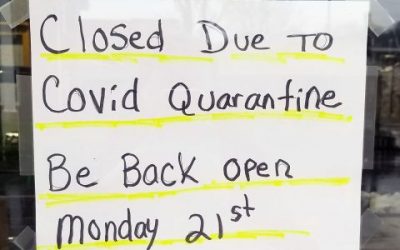 Closed Due To
Covid Quarantine
Be Back open
Monday 21st